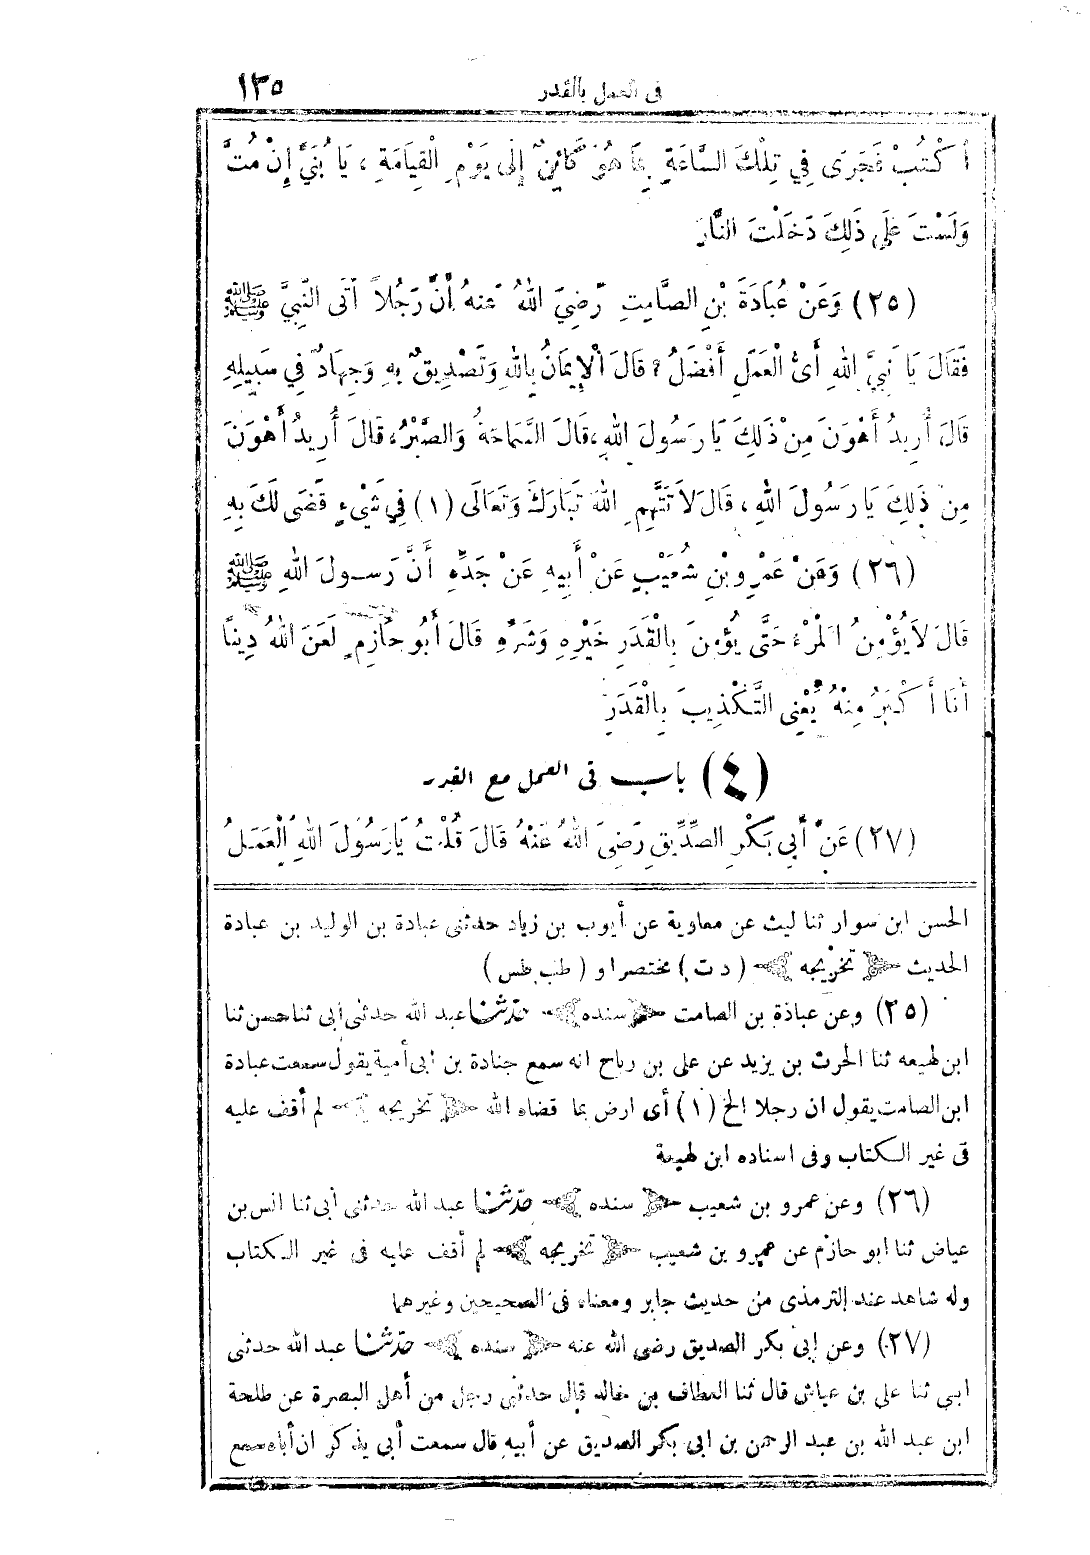 فى العمل بالقدر ١٣٥
أَكْتُبْ فَجَرَى فِي تِلْكَ السَّاعَةِ بِمَا هُوَ كَائِنٌ إِلَى يَوْمِ الْقِيَامَةِ ، يَا بُنَيَّ إِنْ مُتَّ
وَلَسْتَ عَلَى ذَلِكَ دَخَلْتَ النَّارَ
(٢٥) وَعَنْ عُبَادَةَ بْنِ الصَّامِتِ رَضِيَ اللهُ عَنهُ أَنَّ رَجُلاً أَتَى النَّبِيَّ ﷺ
فَقَالَ يَا نَبِيَّ اللهِ أَىُّ الْعَمَلِ أَفْضَلُ ؟ قَالَ الْإِيمَانُ بِاللهِ وَتَصْدِيقٌ بِهِ وَجِهَادٌ فِي سَبِيلِهِ
قَالَ أُرِيدُ أَهْوَنَ مِنْ ذَلِكَ يَا رَسُولَ اللهِ ، قَالَ السَّمَاحَةُ وَالصَّبْرُ ، قَالَ أُرِيدُ أَهْوَنَ
مِنْ ذَلِكَ يَا رَسُولَ اللهِ ، قَالَ لاَ تَتَّهِمِ اللهَ تَبَارَكَ وَتَعَالَى (١) فِي شَيْءٍ قَضَى لَكَ بِهِ
(٢٦) وَعَنْ عَمْرِو بْنِ شُعَيْبٍ عَنْ أَبِيهِ عَنْ جَدِّهِ أَنَّ رَسُولَ اللهِ ﷺ
قَالَ لاَ يُؤْمِنُ الْمَرْءُ حَتَّى يُؤْمِنَ بِالْقَدَرِ خَيْرِهِ وَشَرِّهِ قَالَ أَبُو حَازِمٍ لَعَنَ اللهُ دِينًا
أَنَا أَكْبَرُ مِنْهُ يَعْنِى التَّكْذِيبَ بِالْقَدَرِ
(٤) باب فى العمل مع القدر
(٢٧) عَنْ أَبِي بَكْرٍ الصِّدِّيقِ رَضِىَ اللهُ عَنْهُ قَالَ قُلْتُ يَا رَسُولَ اللهِ الْعَمَلُ
الحسن ابن سوار ثنا ليث عن معاوية عن أيوب بن زياد حدثنى عبادة بن الوليد بن عبادة
الحديث تخريجه (د ت) مختصرا و (طب طس)
(٢٥) وعن عبادة بن الصامت سنده حدّثنا عبد الله حدثنى أبى ثنا حسن ثنا
ابن لهيعه ثنا الحرث بن يزيد عن على بن رباح انه سمع جنادة بن ابى أمية يقول سمعت عبادة
ابن الصامت يقول ان رجلا الخ (١) أى ارض بما قضاه الله تخريجه لم أقف عليه
فى غير الكتاب وفى اسناده ابن لهيعة
(٢٦) وعن عمرو بن شعيب سنده حدّثنا عبد الله حدثنى أبى ثنا انس بن
عياض ثنا ابو حازم عن عمرو بن شعيب تخريجه لم أقف عليه فى غير الكتاب
وله شاهد عند الترمذى من حديث جابر ومعناه فى الصحيحين وغيرهما
(٢٧) وعن ابى بكر الصديق رضى الله عنه سنده حدّثنا عبد الله حدثنى
ابى ثنا على بن عياش قال ثنا العطاف بن خالد قال حدثنى رجل من أهل البصرة عن طلحة
ابن عبد الله بن عبد الرحمن بن ابى بكر الصديق عن أبيه قال سمعت أبى يذكر ان أباه سمع